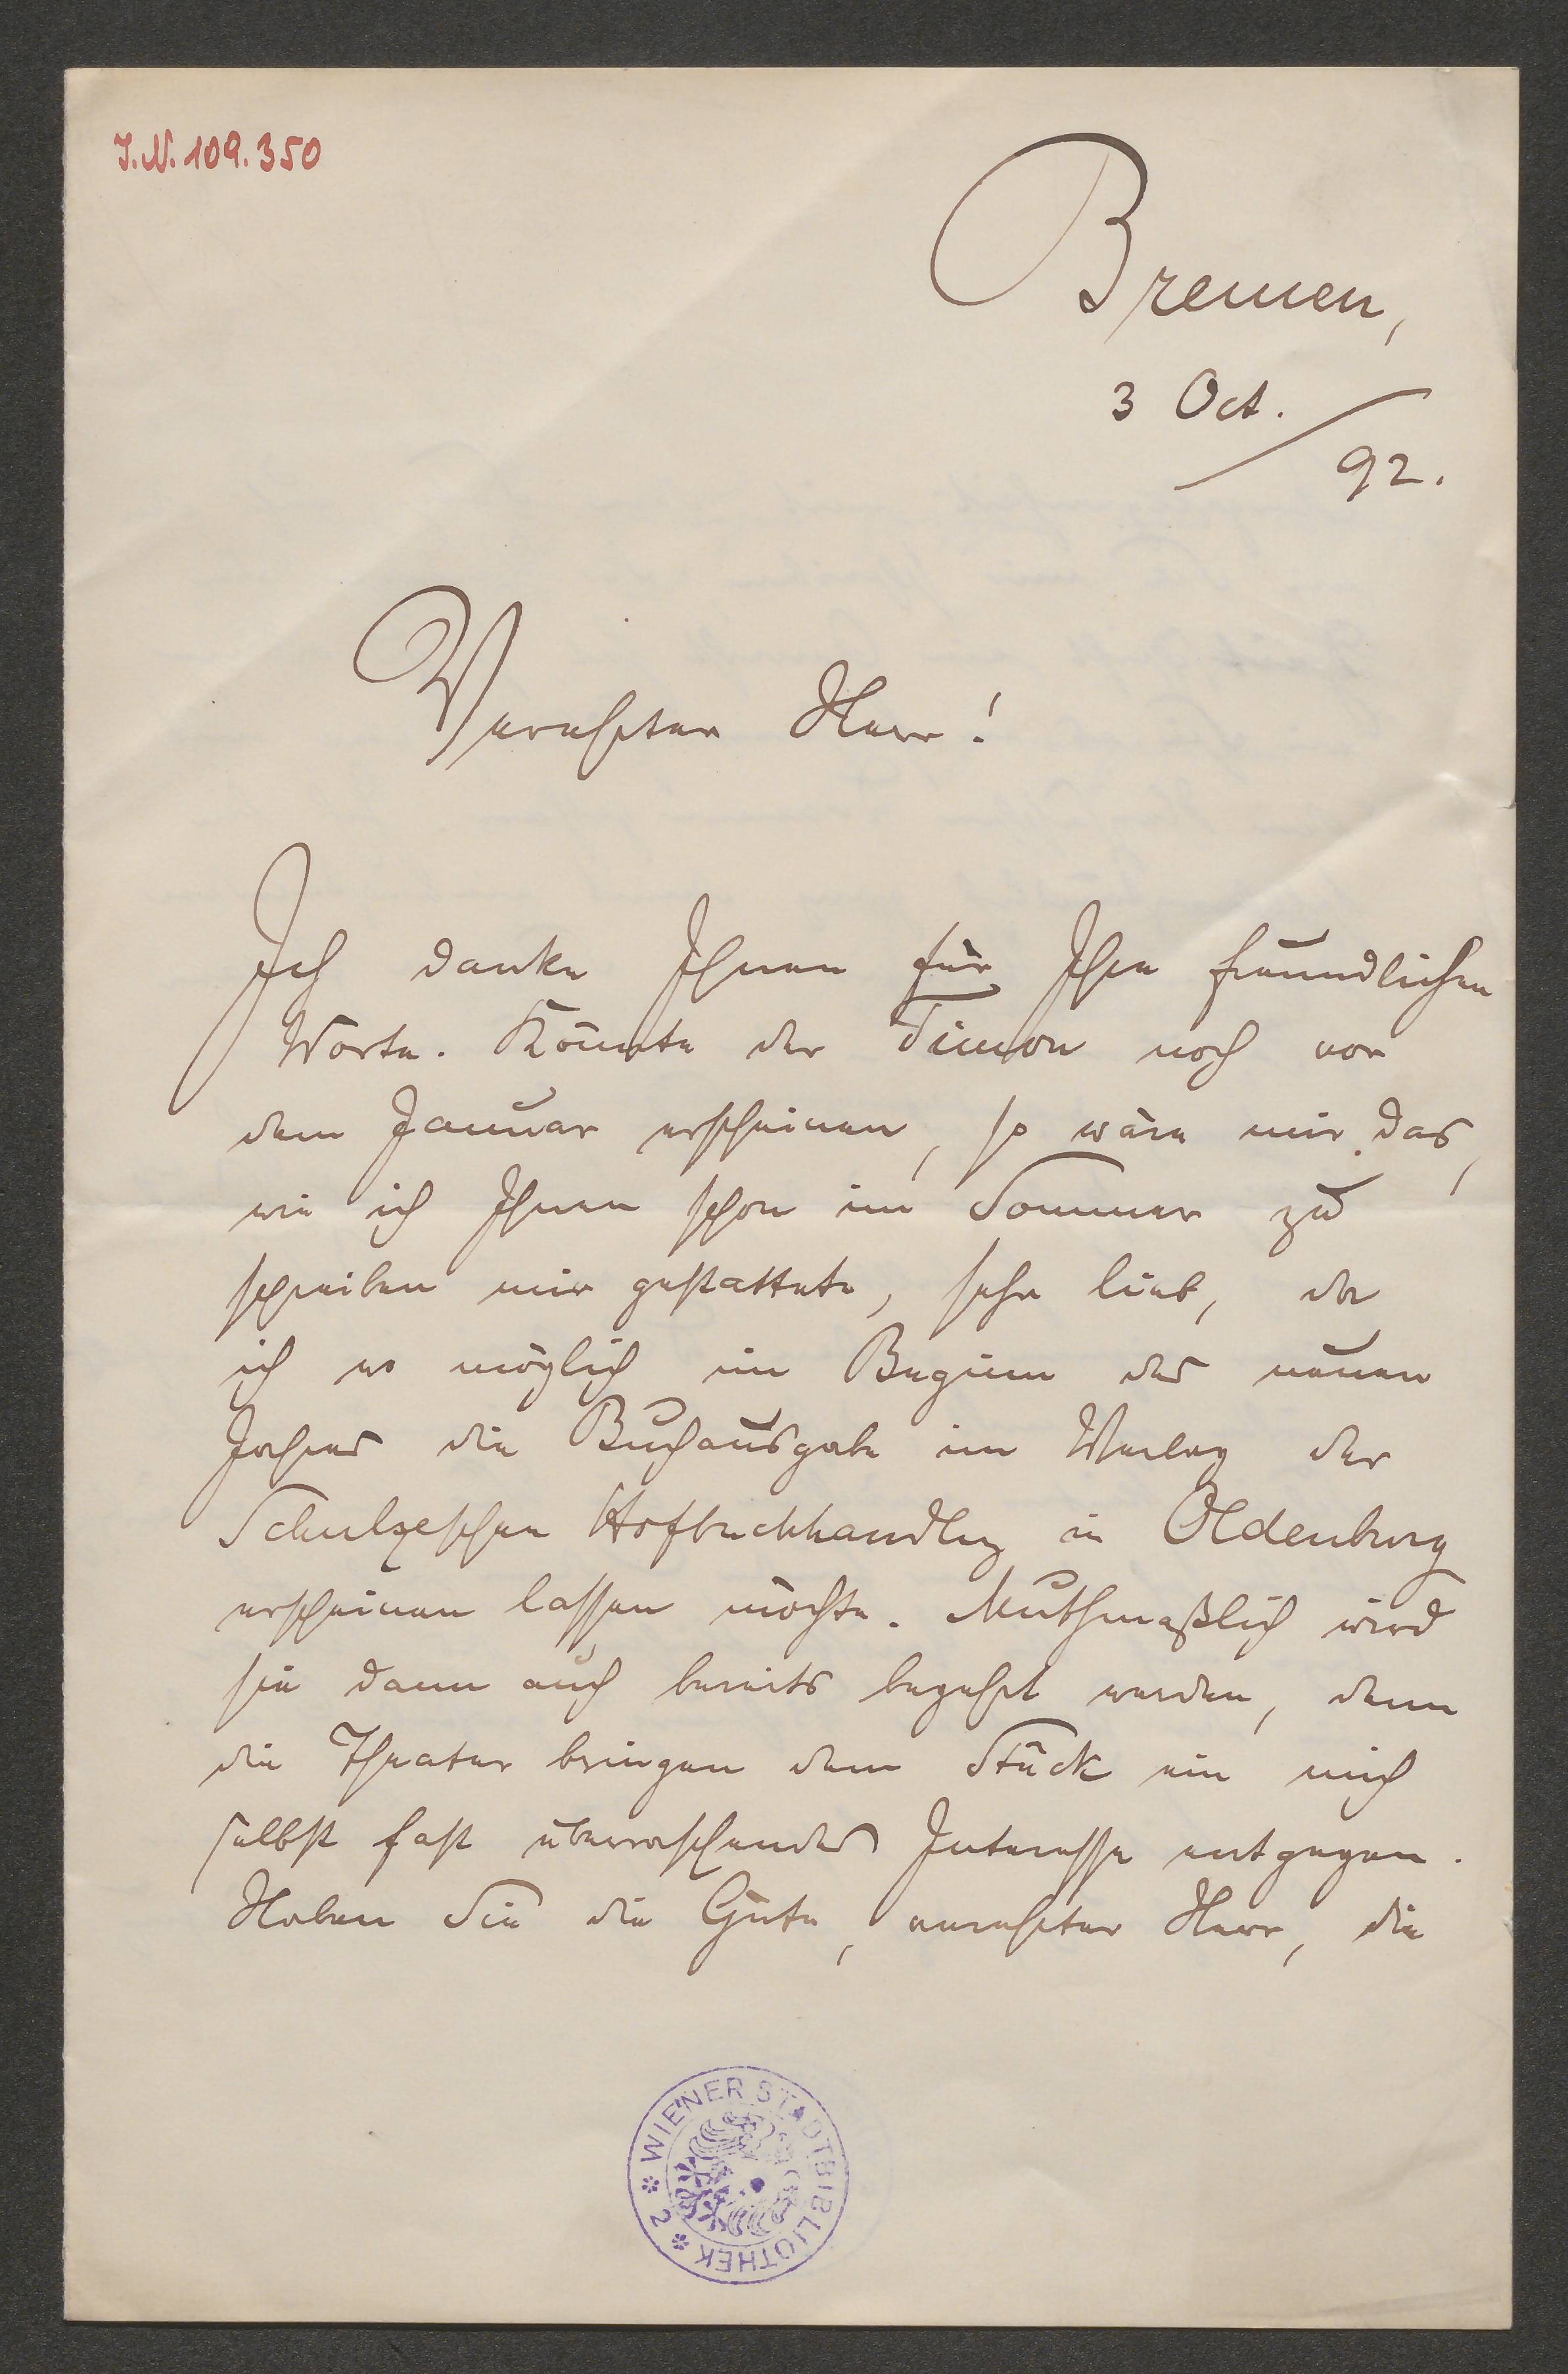 J.N. 109.350
Bremen,
3 Oct.
92.
Verehrter Herr!
Ich danke Ihnen für Ihre freundlichen
Worte. Könnte der Timon noch vor
dem Januar erscheinen, so wäre mir das,
wie ich Ihnen schon im Sommer zu
schreiben mir gestattete, sehr lieb, da
ich wo möglich im Beginn des neuen
Jahres die Buchausgabe im Verlag der
Schulzeschen Hofbuchhandlg in Oldenburg
erscheinen lassen möchte. Muthmaßlich wird
sie dann auch bereits begehrt werden, denn
die Theater bringen dem Stück ein mich
selbst fast überraschendes Interesse entgegen.
Haben Sie die Güte, verehrter Herr, die
WIENER STADTBIBLIOTHEK
2